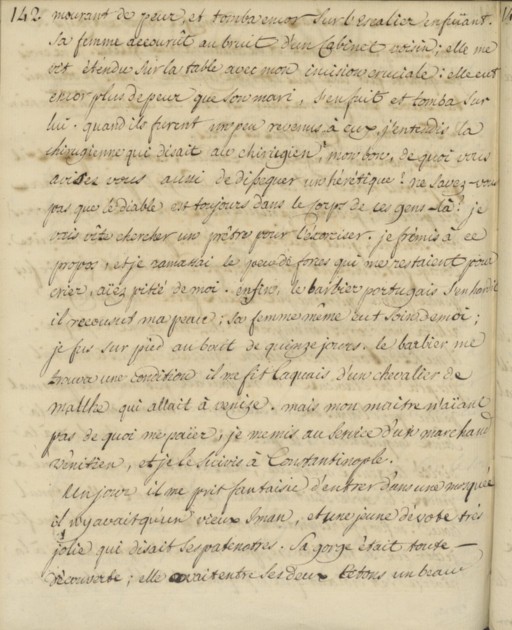 142. mourant de peur, et tomba encor sur l'Escalier en fuiant.
Sa femme accourut au bruit d'un Cabinet voisin; elle me
vit étendu sur la table avec mon incision cruciale: elle eut
encor plus de peur que son mari, s'enfuit et tomba sur
lui. quand ils furent un peu revenus à eux, j'entendis la
chirugienne qui disait au chirugien, mon bon, de quoi vous
avisez vous aussi de disequer un hérétique! ne savez-vous
pas que le diable est toujours dans le corps de ces gens-là? je
vais vite chercher un prêtre pour l'éxorciser. je frémis à ce
propos, et je ramassai le peu de forces qui me restaient pour
crier, aiez pitié de moi. enfin, le barbier portugais s'enhardit
il recousut ma peau; sa femme même eut soin de moi;
je fus sur pied au bout de quinze jours. le barbier me
trouva une condition il me fit laquais d'un chevalier de
Malthe qui allait à venise. mais mon maitre n'aïant
pas de quoi me païer, je me mis au service d'un marchand
vénitien, et je le suivis à Constantinople.
Un jour il me prit fantaisie d'entrer dans une mosquée
il n'y avait qu'un vieux Iman, et une jeune dévote très
jolie qui disait ses patenotres. Sa gorge était toute
découverte; elle avait entre ses deux tetons un beau